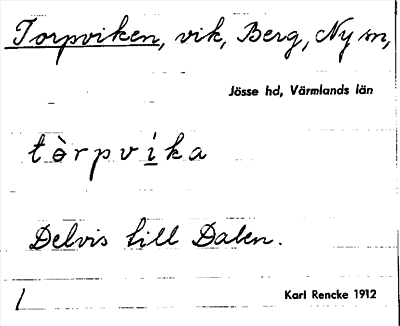 Torpviken, vik, Berg, Ny sn,
Jösse hd, Värmlands län
tòrpvika
Delvis till Dalen.
Karl Rencke 1912